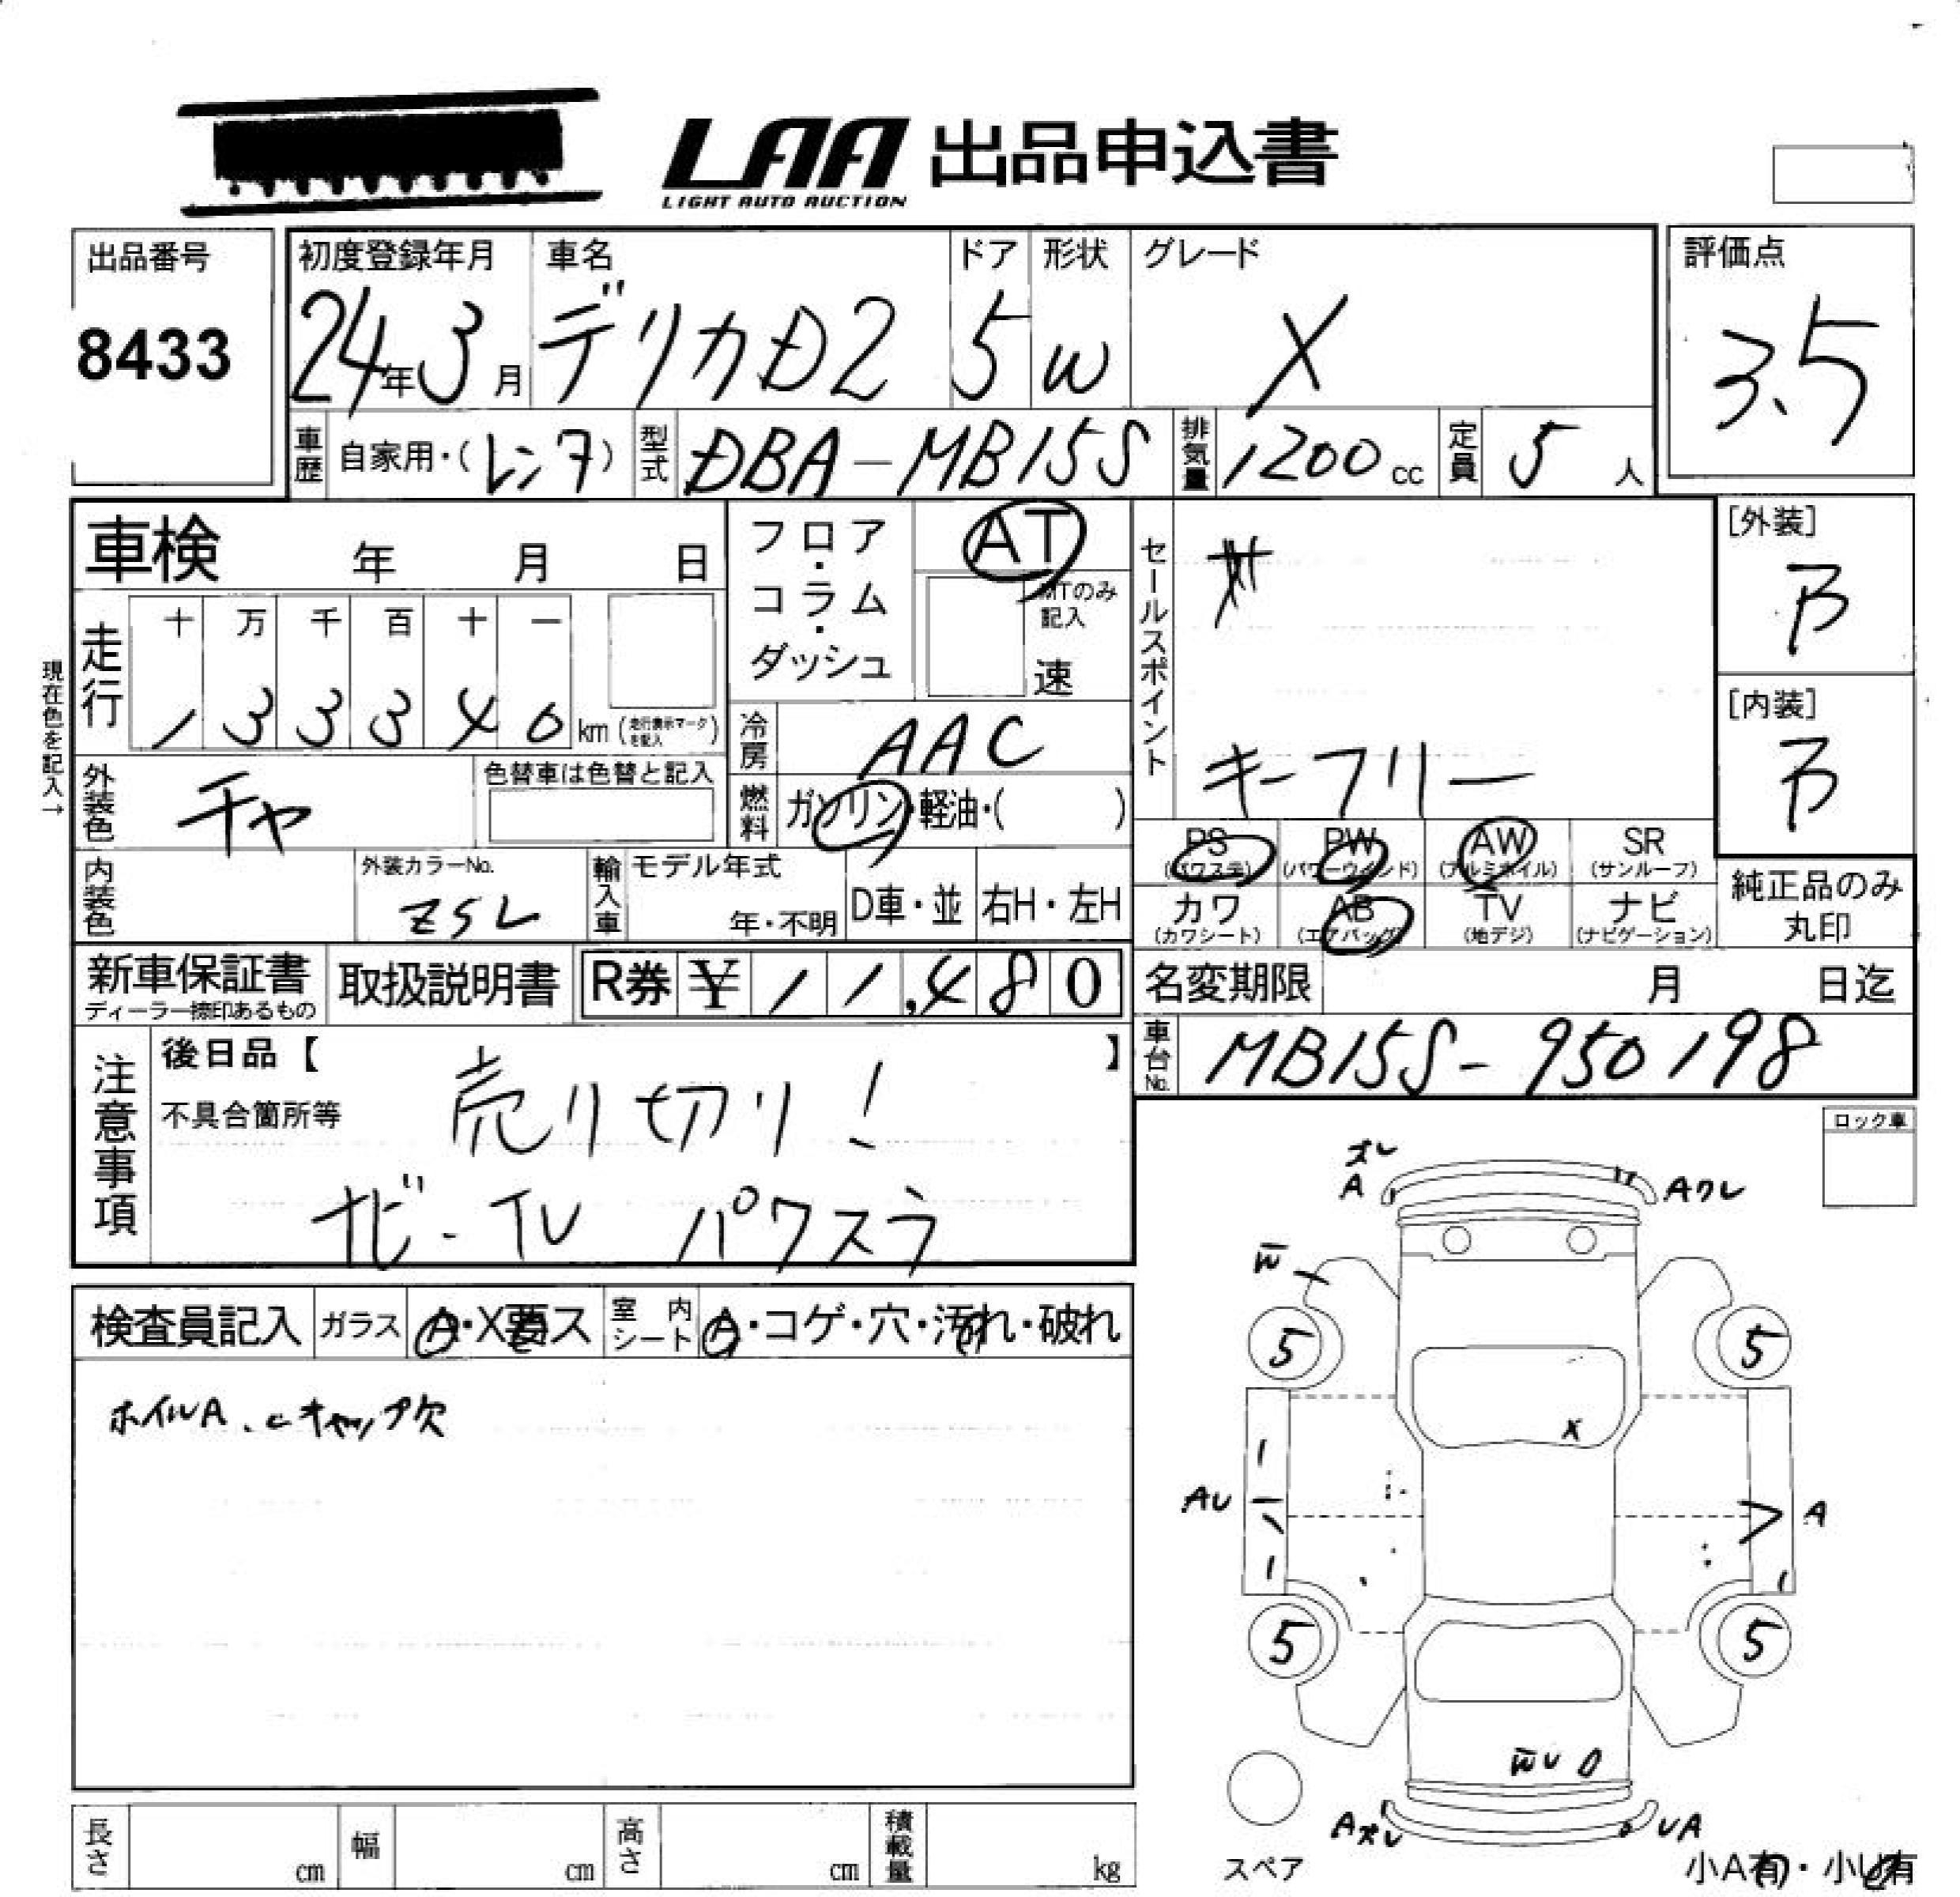 LAA 出品申込書
LIGHT AUTO AUCTION
出品番号
8433
初度登録年月
24年3月
車名
デリカD2
ドア
5
形状
W
グレード
X
評価点
3.5
車歴 自家用・(レンタ)
型式 DBA-MB15S
排気量 1200cc
定員 5人
車検 年 月 日
走行 十 万 千 百 十 一
1 3 3 3 4 0 km (走行表示マークを記入)
現在色を記入→
外装色 チャ
色替車は色替と記入
内装色
外装カラーNo.
ZSL
フロア・コラム・ダッシュ
AT
MTのみ記入
速
冷房 AAC
燃料 ガソリン・軽油・( )
輸入車 モデル年式
年・不明
D車・並
右H・左H
セールスポイント
キーフリー
[外装]
B
[内装]
B
PS (パワステ)
PW (パワーウインド)
AW (アルミホイル)
SR (サンルーフ)
カワ (カワシート)
AB (エアバッグ)
TV (地デジ)
ナビ (ナビゲーション)
純正品のみ丸印
新車保証書
ディーラー捺印あるもの
取扱説明書
R券 ¥11,480
名変期限 月 日迄
車台No. MB15S-950198
注意事項
後日品【 】
不具合箇所等
売り切り!
ナビ・TV パワスラ
検査員記入
ガラス A・X要ス
室内シート A・コゲ・穴・汚れ・破れ
ホイルA、cキャップ欠
ロック車
ズレ
A
Aワレ
W
5
5
X
AU
A
5
5
WU
Aズレ
UA
スペア
小A有・小U有
長さ cm
幅 cm
高さ cm
積載量 kg